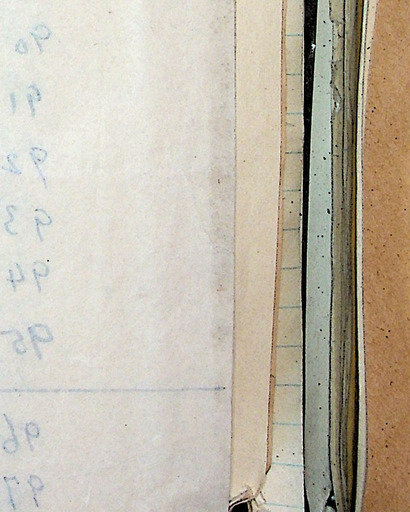 90
91
92
93
94
95
96
97